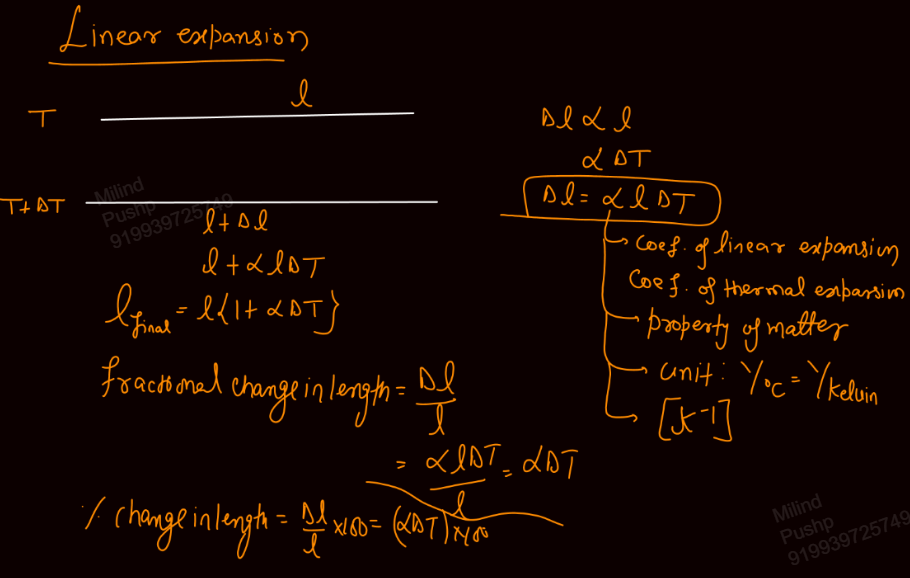 Linear expansion
T
l
T+ΔT
l+Δl
l+αlΔT
l final = l{1+αΔT}
fractional change in length = Δl/l
= αlΔT/l = αΔT
% change in length = Δl/l ×100 = (αΔT)×100
Δl ∝ l
∝ ΔT
Δl = α l ΔT
coef. of linear expansion
coef. of thermal expansion
property of matter
unit: 1/°C = 1/Kelvin
[K⁻¹]
Milind
Pushp
919939725749
Milind
Pushp
919939725749